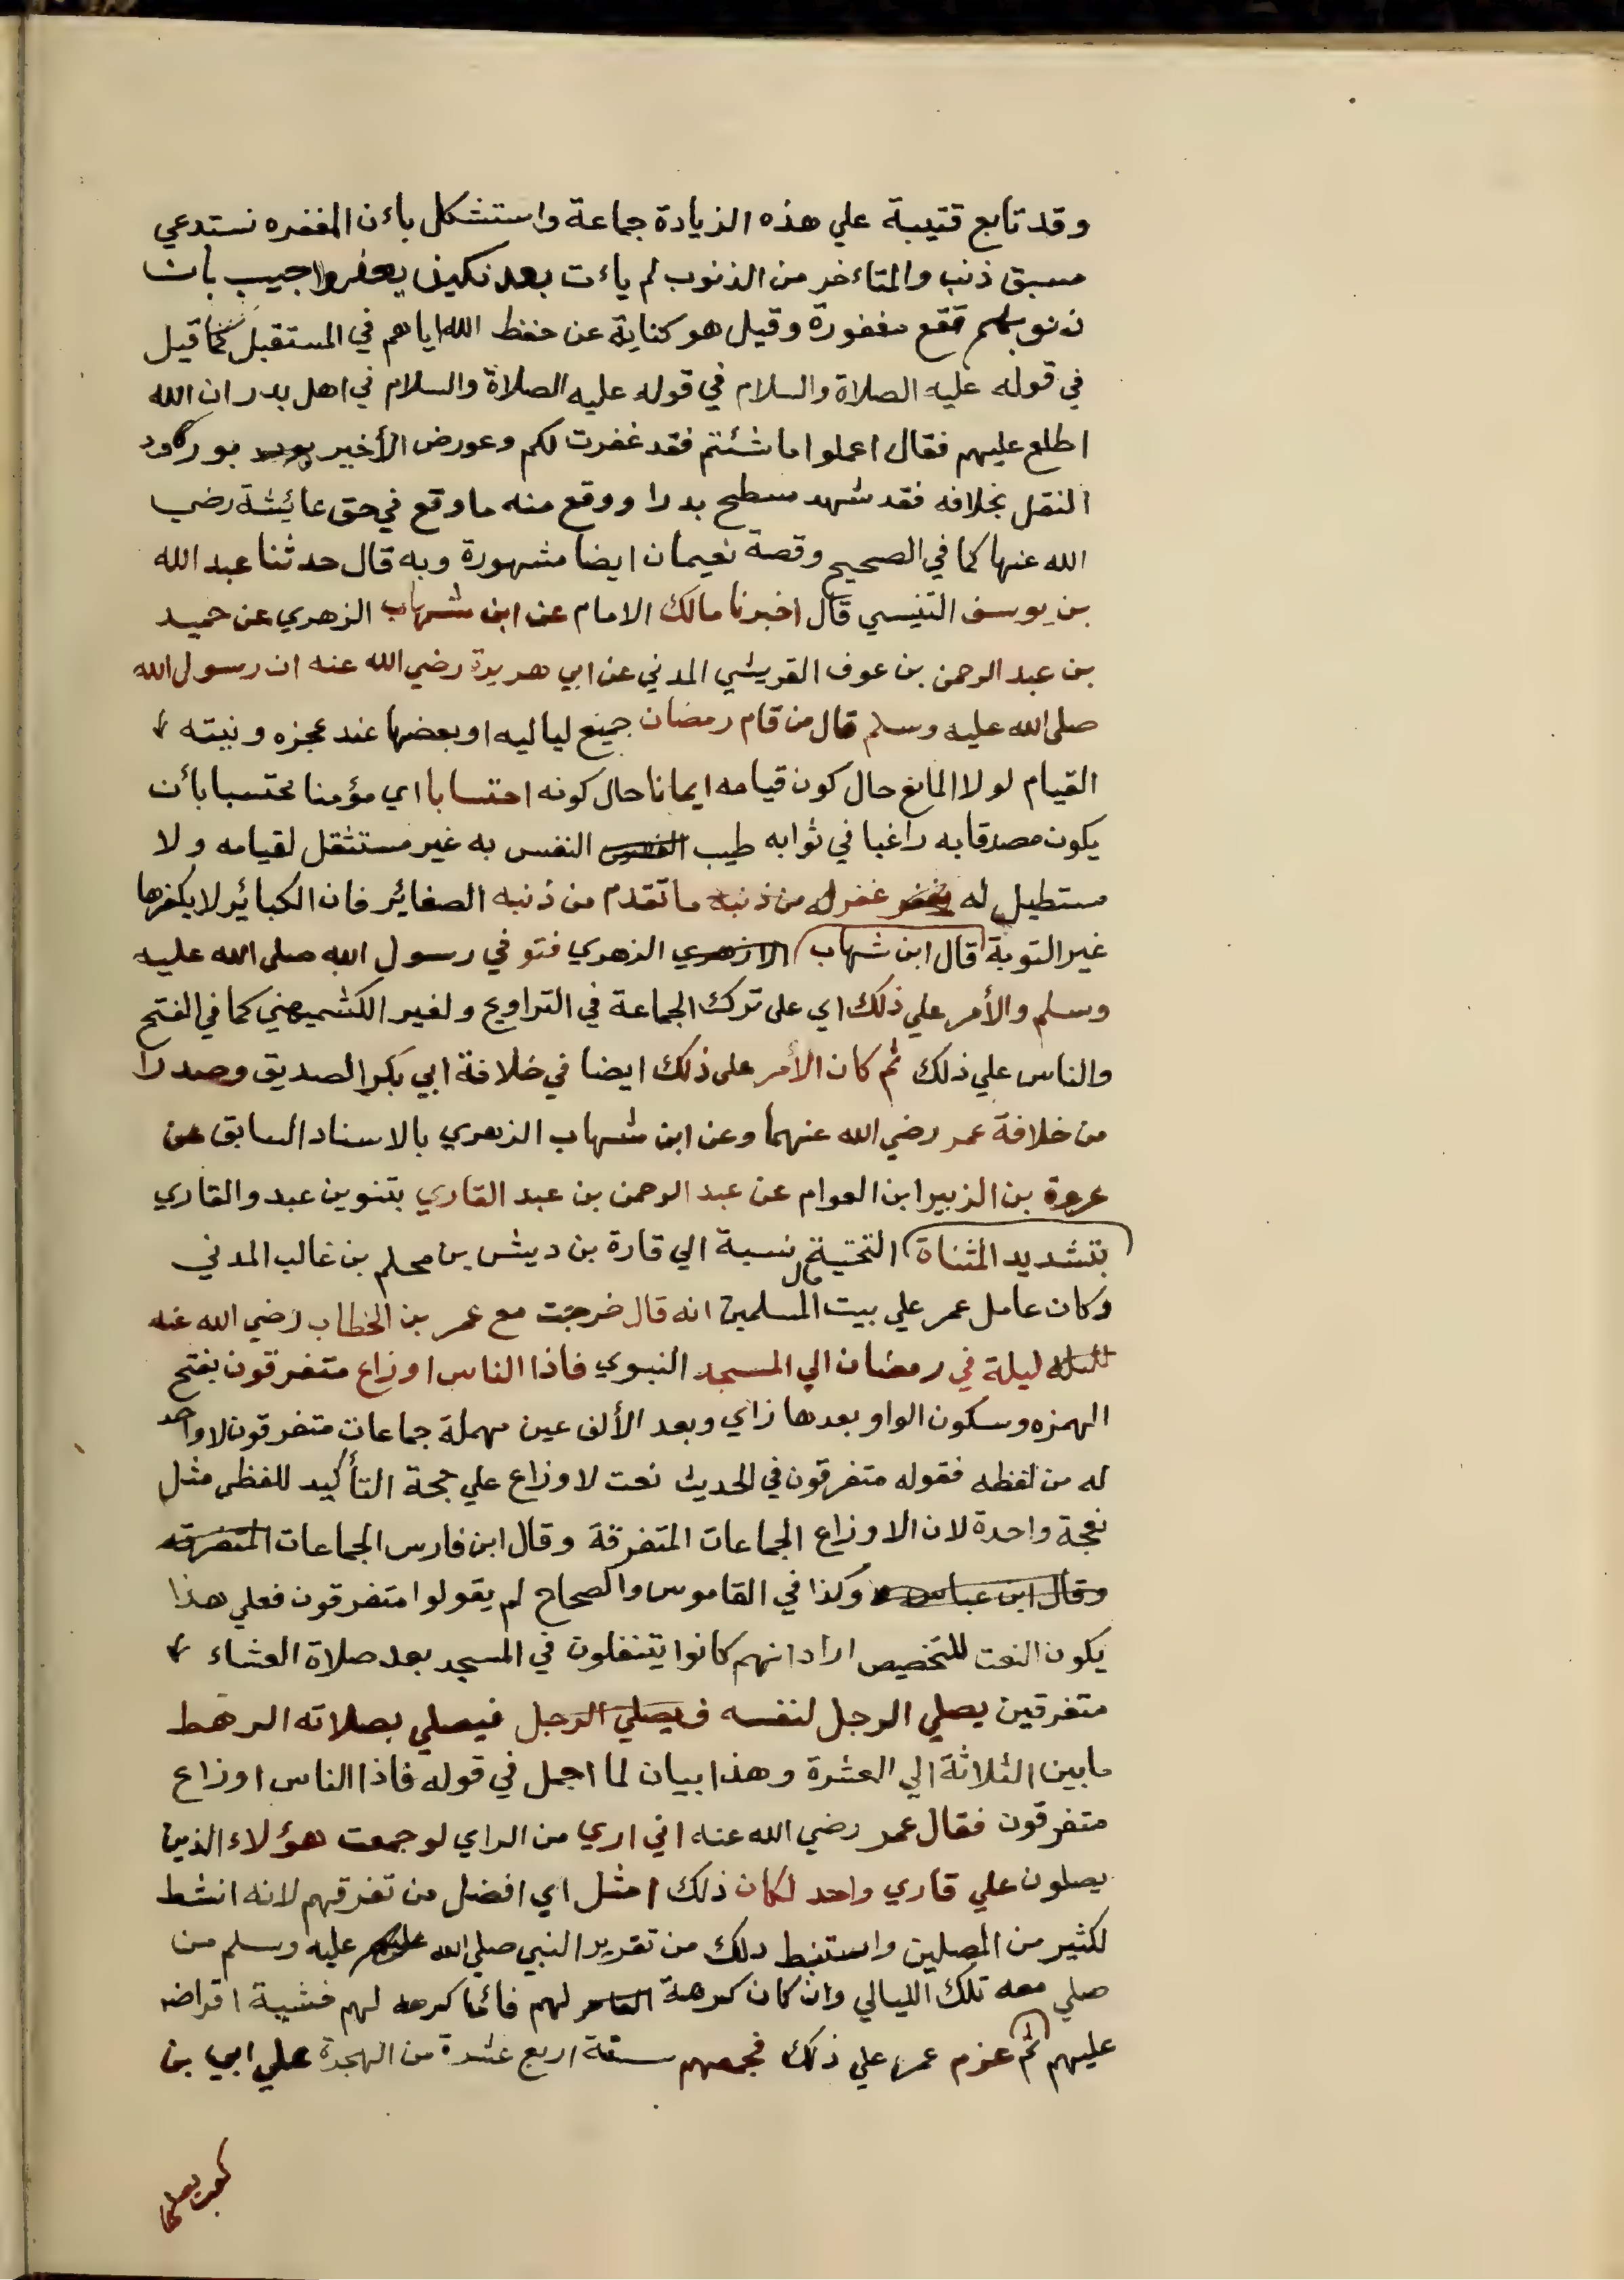 وقد تابع قتيبة علي هذه الزيادة جماعة واستشكل باءن المغفره تستدعي
مسبق ذنب والمتاءخر من الذنوب لم ياءت بعد نكيف يغفر واجيب بان
ذنوبهم تقع مغفورة وقيل هو كناية عن حفظ الله اياهم في المستقبل كما قيل
في قوله عليه الصلاة والسلام في قوله عليه الصلاة والسلام في اهل بدر ان الله
اطلع عليهم فقال اعملوا ما شئتم فقد غفرت لكم وعورض الأخير بورود
النقل بخلافه فقد شهد مسطح بدرا ووقع منه ما وقع في حق عائشة رضي
الله عنها كما في الصحيح وقصة نعيمان ايضا مشهورة وبه قال حدثنا عبد الله
بن يوسف التنيسي قال اخبرنا مالك الامام عن ابن شهاب الزهري عن حميد
بن عبد الرحمن بن عوف القريشي المدني عن ابي هريرة رضي الله عنه ان رسول الله
صلى الله عليه وسلم قال من قام رمضان جميع لياليه او بعضها عند عجزه ونيته
القيام لولا المانع حال كون قيامه ايمانا حال كونه احتسابا اي مؤمنا محتسبا بأن
يكون مصدقا به راغبا في ثوابه طيب النفس به غير مستثقل لقيامه ولا
مستطيل له غفر له من ذنبه ما تقدم من ذنبه الصغائر فان الكبائر لا يكفرها
غير التوبة قال ابن شهاب الازهري الزهري فتوفي رسول الله صلى الله عليه
وسلم والأمر علي ذلك اي على ترك الجماعة في التراويح ولغير الكشميهني كما في الفتح
والناس علي ذلك ثم كان الأمر على ذلك ايضا في خلافة ابي بكر الصديق وصدرا
من خلافة عمر رضي الله عنهما وعن ابن شهاب الزهري بالاسناد السابق عن
عروة بن الزبير ابن العوام عن عبد الرحمن بن عبد القاري بتنوين عبد والقاري
بتشديد المثناة التحتية نسبة الي قارة بن ديش بن محلم بن غالب المدني
وكان عامل عمر علي بيت مال المسلمين انه قال خرجت مع عمر بن الخطاب رضي الله عنه
ليلة في رمضان الي المسجد النبوي فاذا الناس اوزاع متفرقون بفتح
الهمزه وسكون الواو بعدها زاي وبعد الألف عين مهملة جماعات متفرقون لا واحد
له من لفظه فقوله متفرقون في الحديث نعت لاوزاع علي جهة التأكيد للفظى مثل
نعجة واحدة لان الاوزاع الجماعات المتفرقة وقال ابن فارس الجماعات المتفرقه
وقال ابن عباس وكذا في القاموس والصحاح لم يقولوا متفرقون فعلي هذا
يكون النعت للتخصيص اراد انهم كانوا يتنفلون في المسجد بعد صلاة العشاء
متفرقين يصلي الرجل لنفسه فيصلي الرجل فيصلي بصلاته الرهط
مابين الثلاثة الي العشرة وهذا بيان لما اجمل في قوله فاذا الناس اوزاع
متفرقون فقال عمر رضي الله عنه اني اري من الراي لو جمعت هؤلاء الذين
يصلون علي قاري واحد لكان ذلك امثل اي افضل من تفرقهم لانه انشط
لكثير من المصلين واستنبط دلك من تقرير النبي صلي الله عليه وسلم من
صلي معه تلك الليالي وان كان كرهة لهم فانما كرهه لهم خشية افتراضه
عليهم ثم عزم عمر علي ذلك فجمعهم سنة اربع عشرة من الهجرة علي ابي بن